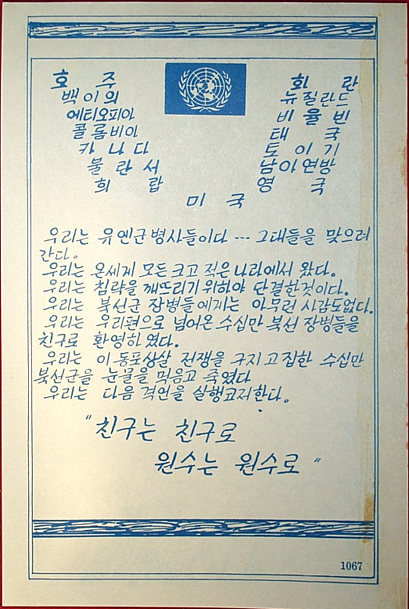 호 주 화 란
백이의 뉴질란드
에티오피아 비율빈
콜롬비아 태 국
카나다 토이기
불란서 남아연방
희 랍 영 국
미 국
우리는 유엔군병사들이다 --- 그대들을 맞으러
간다.
우리는 온세계 모든 크고 적은 나라에서 왔다.
우리는 침략을 깨뜨리기 위하야 단결한것이다.
우리는 북선군 장병들에게는 아무런 사감도없다.
우리는 우리편으로 넘어온 수십만 북선 장병들을
친구로 환영하였다.
우리는 이 동포상살 전쟁을 구지 고집한 수십만
북선군을 눈물을 먹음고 죽였다
우리는 다음 격언을 실행코저한다.
"친구는 친구로
원수는 원수로"
1067